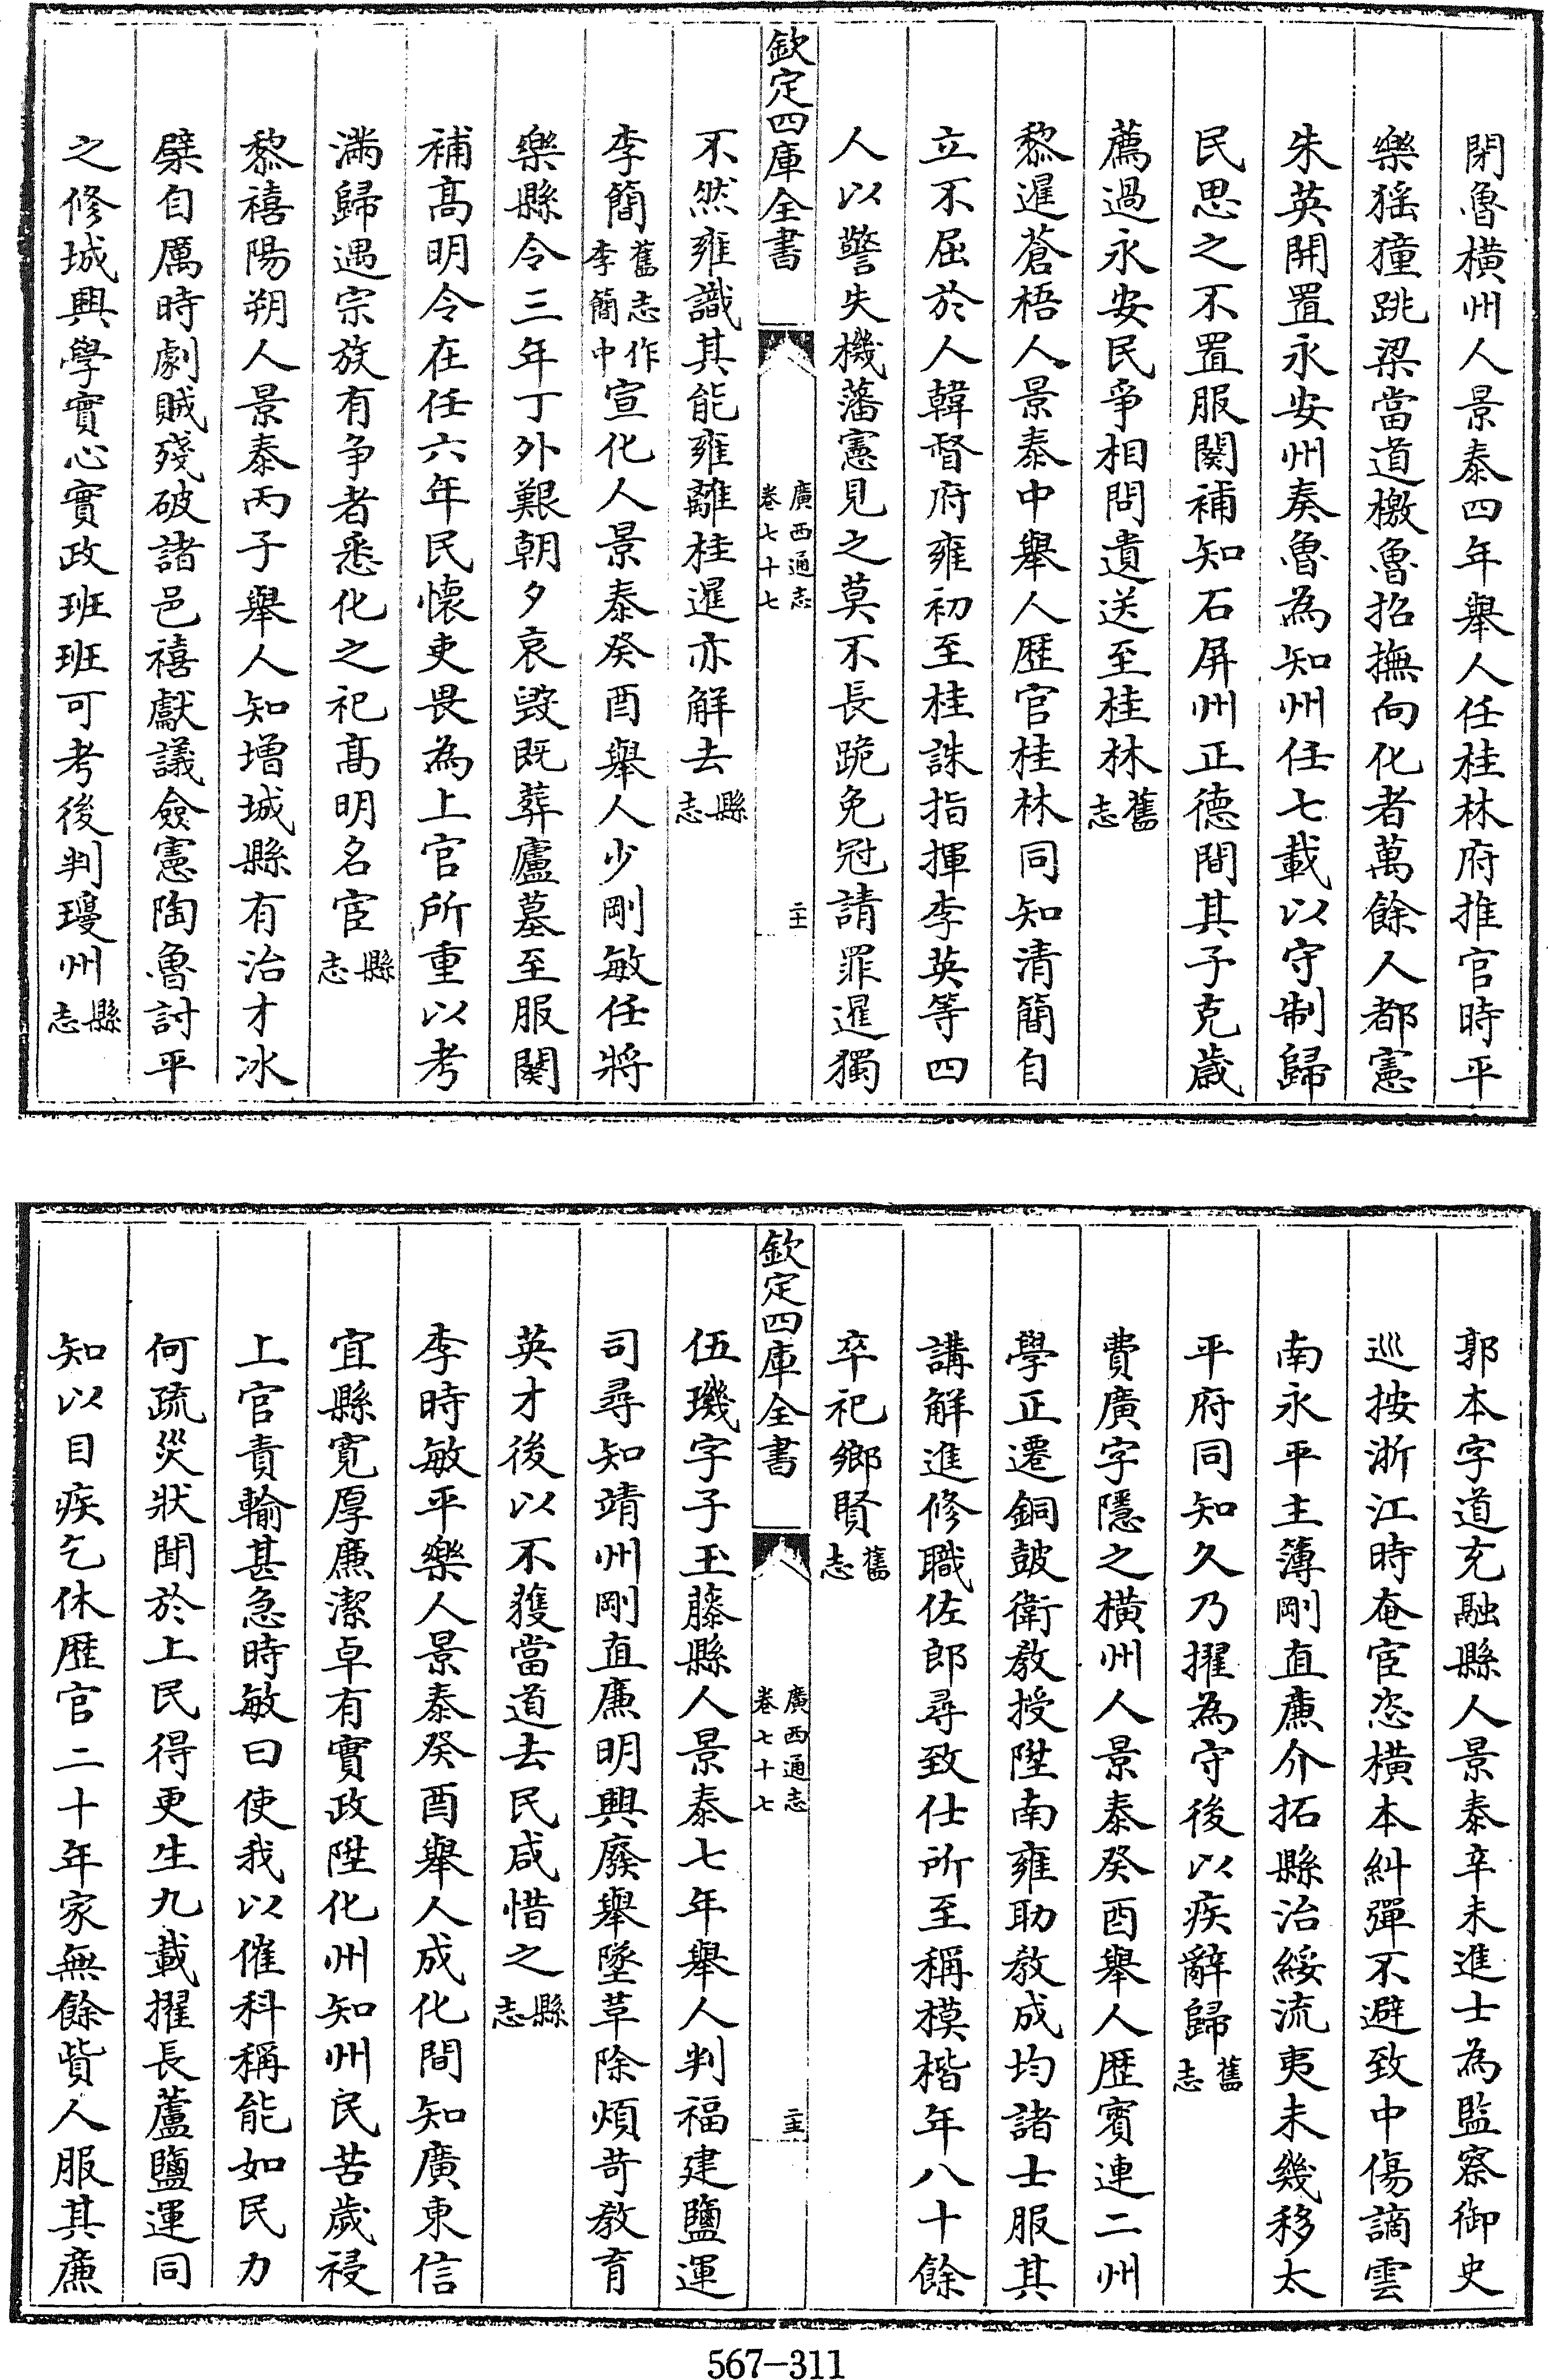 閉魯橫州人景泰四年舉人任桂林府推官時平
樂猺獞跳梁當道檄魯招撫向化者萬餘人都憲
朱英開置永安州奏魯為知州任七載以守制歸
民思之不置服闋補知石屏州正德間其子克嵗
薦過永安民爭相問遺送至桂林舊志
黎暹蒼梧人景泰中舉人歴官桂林同知清簡自
立不屈於人韓督府雍初至桂誅指揮李英等四
人以警失機藩憲見之莫不長跪免冠請罪暹獨
欽定四庫全書
廣西通志
卷七十七
二十
不然雍識其能雍離桂暹亦解去縣志
李簡舊志作李簡中宣化人景泰癸酉舉人少剛敏任將
樂縣令三年丁外艱朝夕哀毀既葬廬墓至服闋
補髙明令在任六年民懷吏畏為上官所重以考
滿歸遇宗族有争者悉化之祀髙明名宦縣志
黎禧陽朔人景泰丙子舉人知増城縣有治才冰
櫱自厲時劇賊殘破諸邑禧獻議僉憲陶魯討平
之修城興學實心實政班班可考後判瓊州縣志
郭本字道充融縣人景泰辛未進士為監察御史
巡按浙江時奄宦恣橫本糾彈不避致中傷謫雲
南永平主簿剛直亷介拓縣治綏流夷未幾移太
平府同知久乃擢為守後以疾辭歸舊志
費廣字隱之橫州人景泰癸酉舉人歴賓連二州
學正遷銅鼓衛教授陞南雍助教成均諸士服其
講解進修職佐郎尋致仕所至稱模楷年八十餘
卒祀鄉賢舊志
欽定四庫全書
廣西通志
卷七十七
二十一
伍璣字子玉藤縣人景泰七年舉人判福建鹽運
司尋知靖州剛直亷明興廢舉墜革除煩苛教育
英才後以不獲當道去民咸惜之縣志
李時敏平樂人景泰癸酉舉人成化間知廣東信
宜縣寛厚亷潔卓有實政陞化州知州民苦歲祲
上官責輸甚急時敏曰使我以催科稱能如民力
何疏災狀聞於上民得更生九載擢長蘆鹽運同
知以目疾乞休歴官二十年家無餘貲人服其亷
567-311